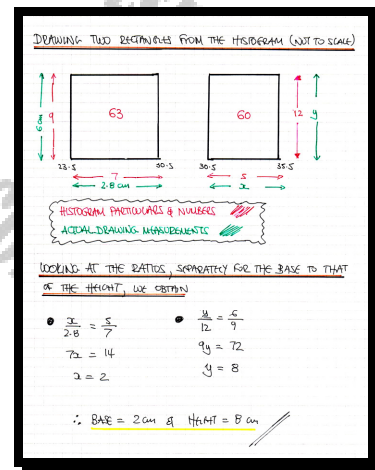 DRAWING TWO RECTANGLES FROM THE HISTOGRAM (NOT TO SCALE)
6cm 9 63 60 12 y
23.5 30.5 30.5 35.5
7 5
2.8 cm x
HISTOGRAM PARTICULARS & NUMBERS
ACTUAL DRAWING MEASUREMENTS
LOOKING AT THE RATIOS, SEPARATELY FOR THE BASE TO THAT
OF THE HEIGHT, WE OBTAIN
• x/2.8 = 5/7 • y/12 = 6/9
7x = 14 9y = 72
x = 2 y = 8
∴ BASE = 2 cm & HEIGHT = 8 cm